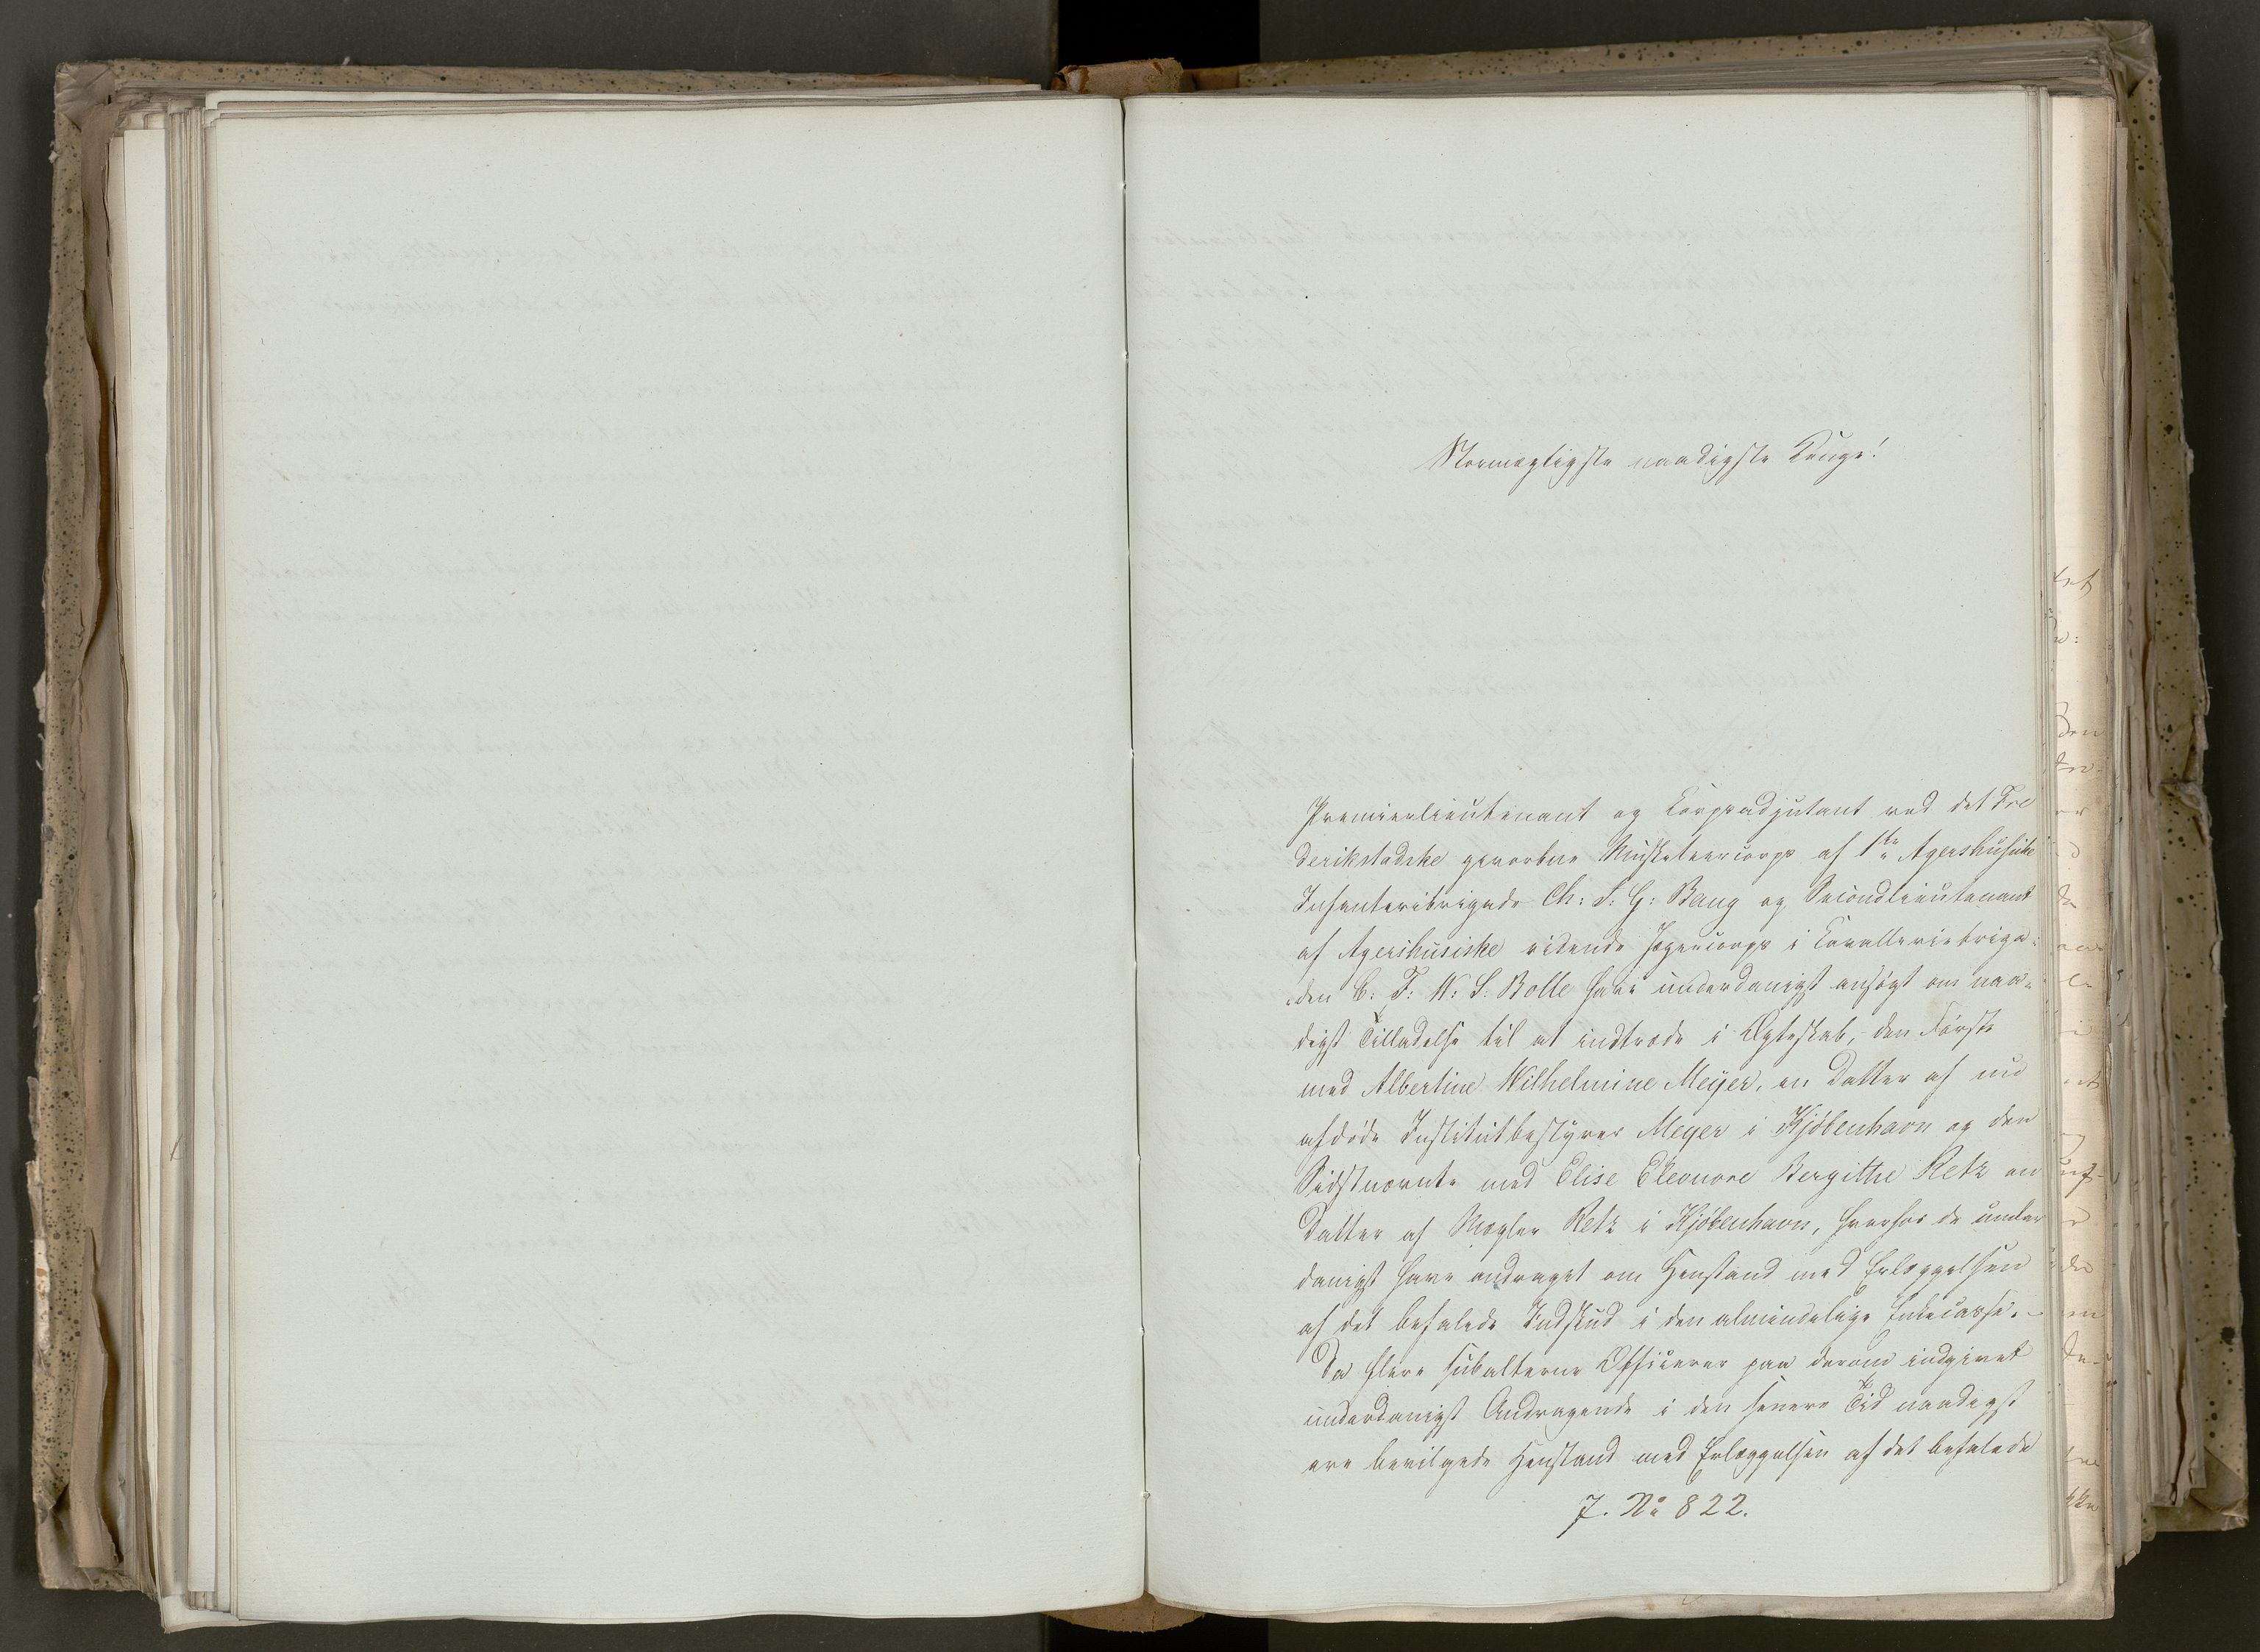 Stormægtigste naadigste Konge!
Premierlieutenant og Corpsadjutant ved det Fre
derikstadske gevorbne Musketeercorps af 1ste Agershusiske
Infanteribrigade Ch: S: G: Bang og Secondlieutenant
af Agershusiske ridende Jægercorps i Cavalleriebriga-
den C: F: W: S: Bolle have underdanigst ansøgt om naa-
digst Tilladelse til at indtræde i Ægteskab, den Første
med Albertine Wilhelmine Meyer, en Datter af nu
afdøde Institutbestyrer Meyer i Kjøbenhavn og den
Sidstnævnte med Elise Eleonore Bergithe Retz en
Datter af Mægler Retz i Kjøbenhavn, hvorhos de under
danigst have andraget om Henstand med Erlæggelsen
af det befalede Indskud i den almindelige Enkecasse.-
Da flere subalterne Officerer paa derom indgivet
underdanigst Andragende i den senere Tid naadigst
ere bevilgede Henstand med Erlæggelsen af det befalede
J. No 822.